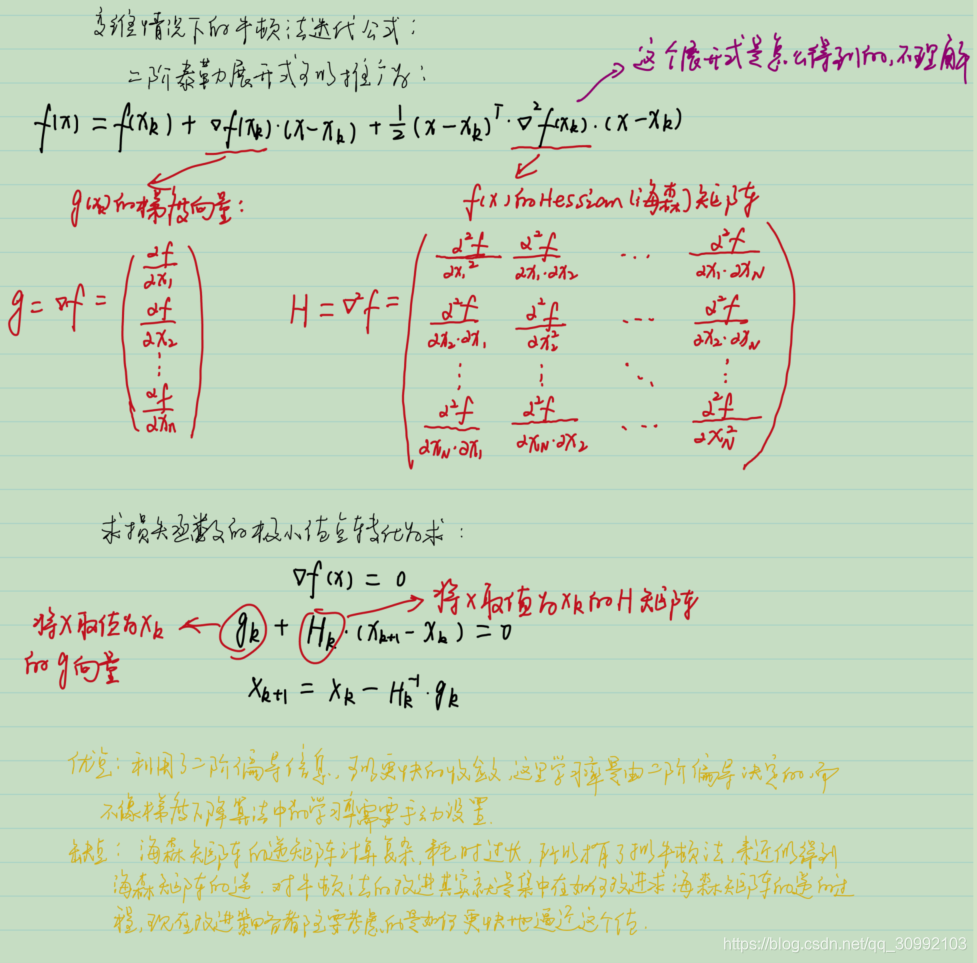 多维情况下的牛顿法迭代公式：
二阶泰勒展开式可以推广为：
这个展开式是怎么得到的,不理解
f(x) = f(x_k) + ∇f(x_k)·(x-x_k) + 1/2 (x-x_k)^T·∇²f(x_k)·(x-x_k)
g(x)的梯度向量：
f(x)的Hession(海森)矩阵
g = ∇f = (∂f/∂x₁ ∂f/∂x₂ ⋮ ∂f/∂x_n)
H = ∇²f =
∂²f/∂x₁² ∂²f/∂x₁·∂x₂ … ∂²f/∂x₁·∂x_N
∂²f/∂x₂·∂x₁ ∂²f/∂x₂² … ∂²f/∂x₂·∂x_N
⋮ ⋮ ⋱ ⋮
∂²f/∂x_N·∂x₁ ∂²f/∂x_N·∂x₂ … ∂²f/∂x_N²
求损失函数的极小值点转化为求：
∇f(x) = 0
将x取值为x_k的H矩阵
将x取值为x_k
的g向量
g_k + H_k·(x_{k+1} - x_k) = 0
x_{k+1} = x_k - H_k^{-1}·g_k
优点：利用了二阶偏导信息，可以更快的收敛，这里学习率是由二阶偏导决定的，而
不像梯度下降算法中的学习率需要手动设置.
缺点：海森矩阵的逆矩阵计算复杂，耗时过长，所以才有了拟牛顿法，来近似得到
海森矩阵的逆．对牛顿法的改进其实就是集中在如何改进求海森矩阵的逆的过
程，现在改进策略都主要考虑的是如何更快地逼近这个值.
https://blog.csdn.net/qq_30992103